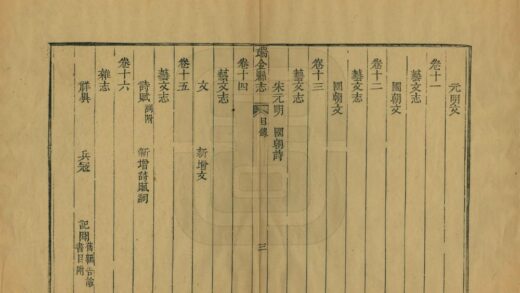 元明文
卷十一
藝文志
國朝文
卷十二
藝文志
國朝文
卷十三
藝文志
宋元明 國朝詩
瑞金縣志 目錄 三
卷十四
藝文志
文 新增文
卷十五
藝文志
詩賦 詞附 新增詩賦詞
卷十六
雜志
祥異 兵寇 記聞 書目附